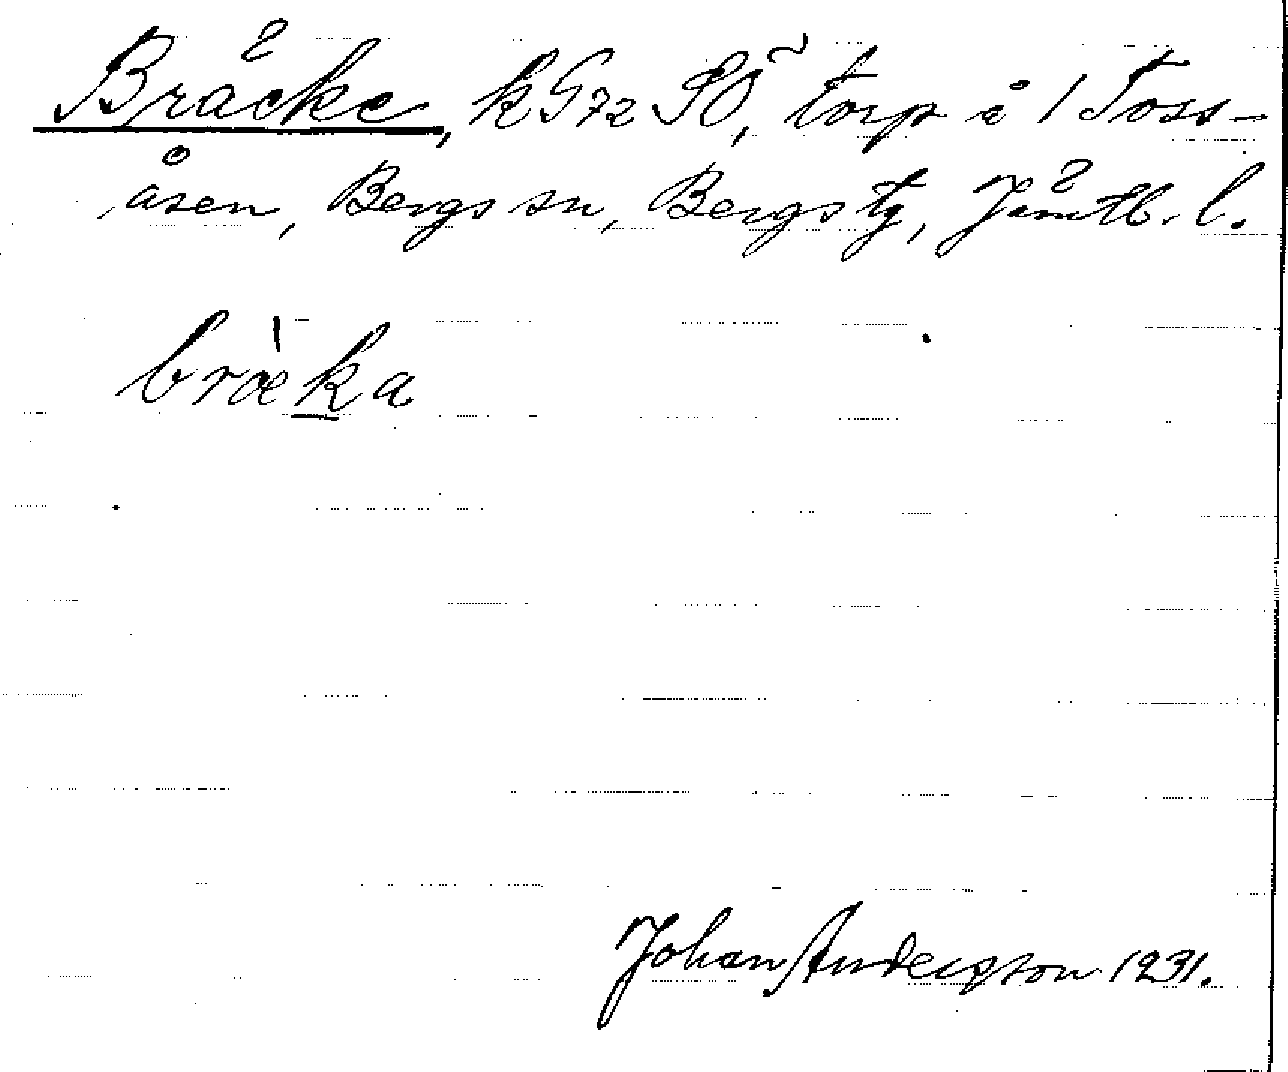 Bräcke, k G72 SÖ, torp i 1 Toss-
åsen, Bergs sn, Bergs tg, Jämtl. l.
bræ̀ka
Johan Andersson 1931.